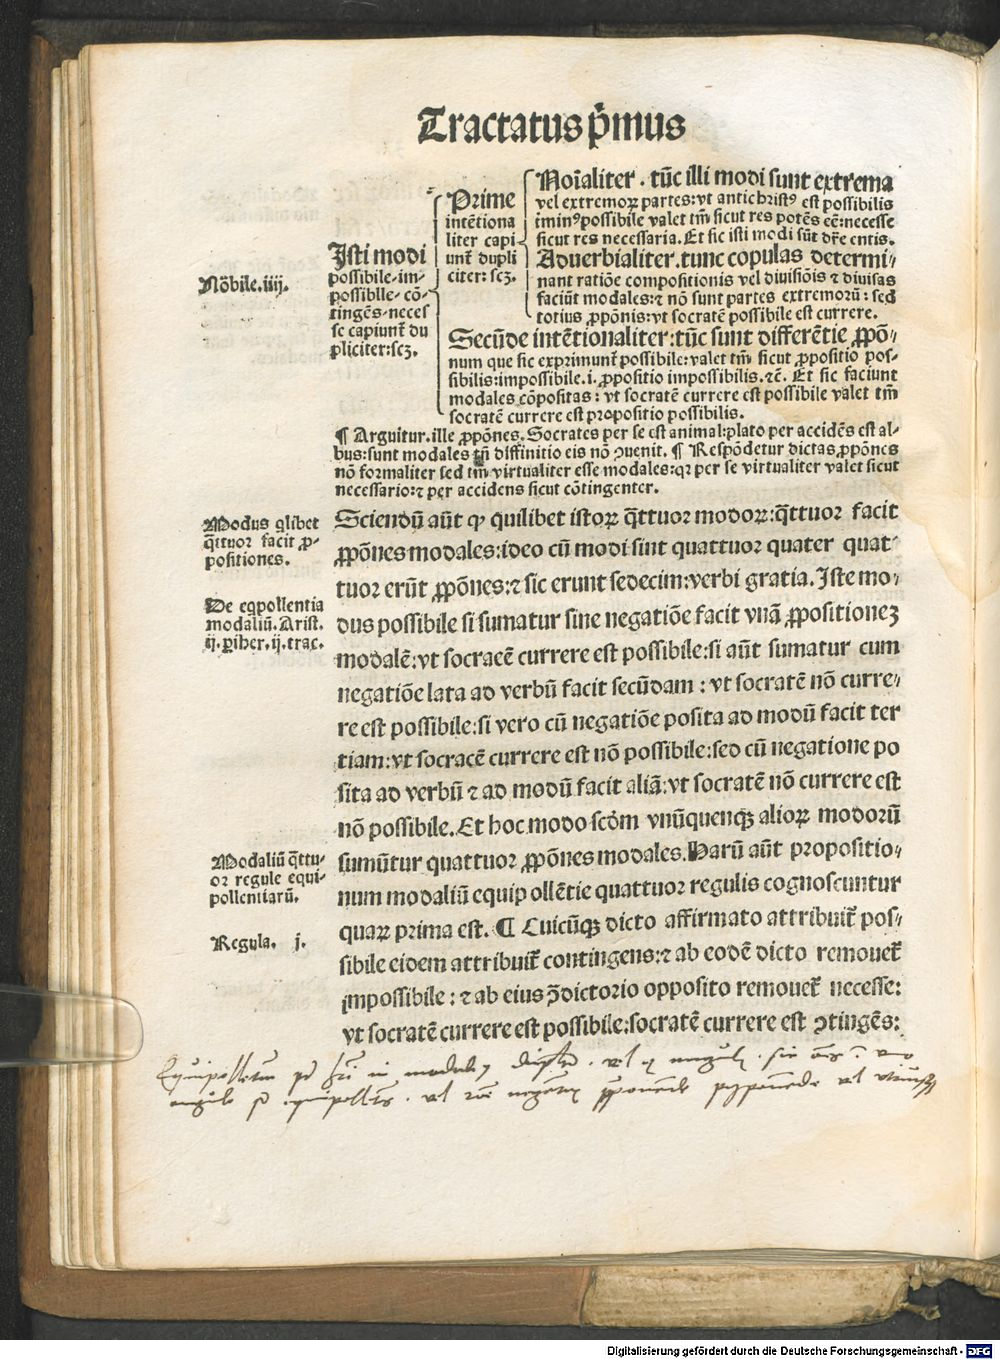 Tractatus p̄mus
Nōbile.iiij.
Isti modi
possibile-im-
possiblle-cō-
tingēs-neces
se capiunt̄ du
pliciter:scꝫ.
Prime
intētiona
liter capi-
unt̄ dupli
citer:scꝫ.
Noīaliter . tūc illi modi sunt extrema
vel extremoꝝ partes:vt antichristꝰ est possibilis
iminꝰpossibile valet tm̄ sicut res potēs eē:necesse
sicut res necessaria. Et sic isti modi sūt dr̄e entis.
Aduerbialiter.tunc copulas determi-
nant ratiōe compositionis vel diuisiōis ⁊ diuisas
faciūt modales:⁊ nō sunt partes extremorū: sed
totius ꝓpōnis:vt socratē possibile est currere.
Secūde intētionaliter:tūc sunt differētie ꝓpō-
num que sic exprimunt̄ possibile:valet tm̄ sicut ꝓpositio pos-
sibilis:impossibile.i.ꝓpositio impossibilis.⁊c̄. Et sic faciunt
modales cōpositas: vt socratē currere est possibile valet tm̄
socratē currere est propositio possibilis.
¶ Arguitur.ille ꝓpōnes. Socrates per se est animal:plato per accidēs est al-
bus:sunt modales tn̄ diffinitio eis nō ↄuenit. ¶ Respōdetur dictas ꝓpōnes
nō formaliter sed tm̄ virtualiter esse modales:qꝛ per se virtualiter valet sicut
necessario:⁊ per accidens sicut cōtingenter.
Modus qlibet
q̄ttuor facit ꝓ-
positiones.
Sciendū aūt ꝙ quilibet istoꝝ q̄ttuor modoꝝ:q̄ttuor facit
ꝓpōnes modales:ideo cū modi sint quattuor quater quat-
tuor erūt ꝓpōnes:⁊ sic erunt sedecim:verbi gratia. Iste mo-
De eqpollentia
modaliū. Arist.
ij.ꝑiher.ij.trac.
dus possibile si sumatur sine negatiōe facit vnā ꝓpositioneꝫ
modalē:vt socraeē currere est possibile:si aūt sumatur cum
negatiōe lata ad verbū facit secūdam : vt socratē nō curre-
re est possibile:si vero cū negatiōe posita ad modū facit ter
tiam:vt socracē currere est nō possibile:sed cū negatione po
sita ad verbū ⁊ ad modū facit aliā:vt socratē nō currere est
nō possibile. Et hoc modo scd̄m vnūquenqꝫ alioꝝ modorū
Modaliū q̄ttu-
or regule equi-
pollentiarū.
sumūtur quattuor ꝓpōnes modales. Harū aūt propositio-
num modaliū equip ollētie quattuor regulis cognoscuntur
quaꝝ prima est. ¶ Cuicūqꝫ dicto affirmato attribuit̄ pos-
Regula. j.
sibile eidem attribuit̄ contingens:⁊ ab eodē dicto remouet̄
impossibile : ⁊ ab eius ↄ̄dictorio opposito remouet̄ necesse:
vt socratē currere est possibile:socratē currere est ↄtingēs:
Digitalisierung gefördert durch die Deutsche Forschungsgemeinschaft - DFG